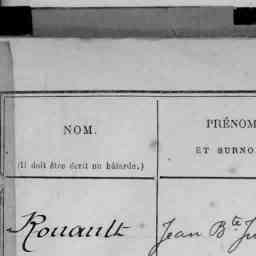 NOM.
(Il doit être écrit en bâtarde.)
PRÉNOM
ET SURNO
Rouault
Jean Bte